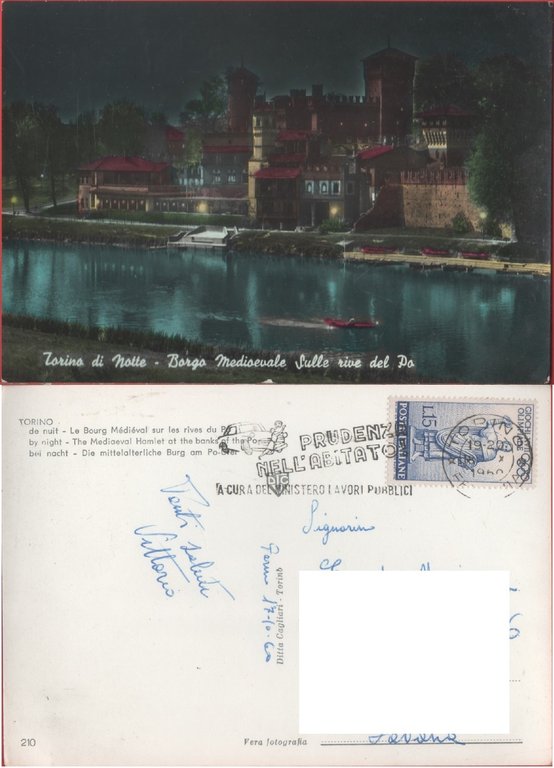 Torino di Notte - Borgo Medioevale Sulle rive del Po
TORINO
de nuit - Le Bourg Médiéval sur les rives du P
by night - The Mediaeval Hamlet at the banks of the Po
bei nacht - Die mittelalterliche Burg am Po-
PRUDENZ
NELL'ABITATO
A CURA DEL MINISTERO LAVORI PUBBLICI
POSTE ITALIANE
L.15
Tanti saluti
Vittorio
17-10-60
Ditta Cagliari - Torino
Signorina
Savona
210
Vera fotografia